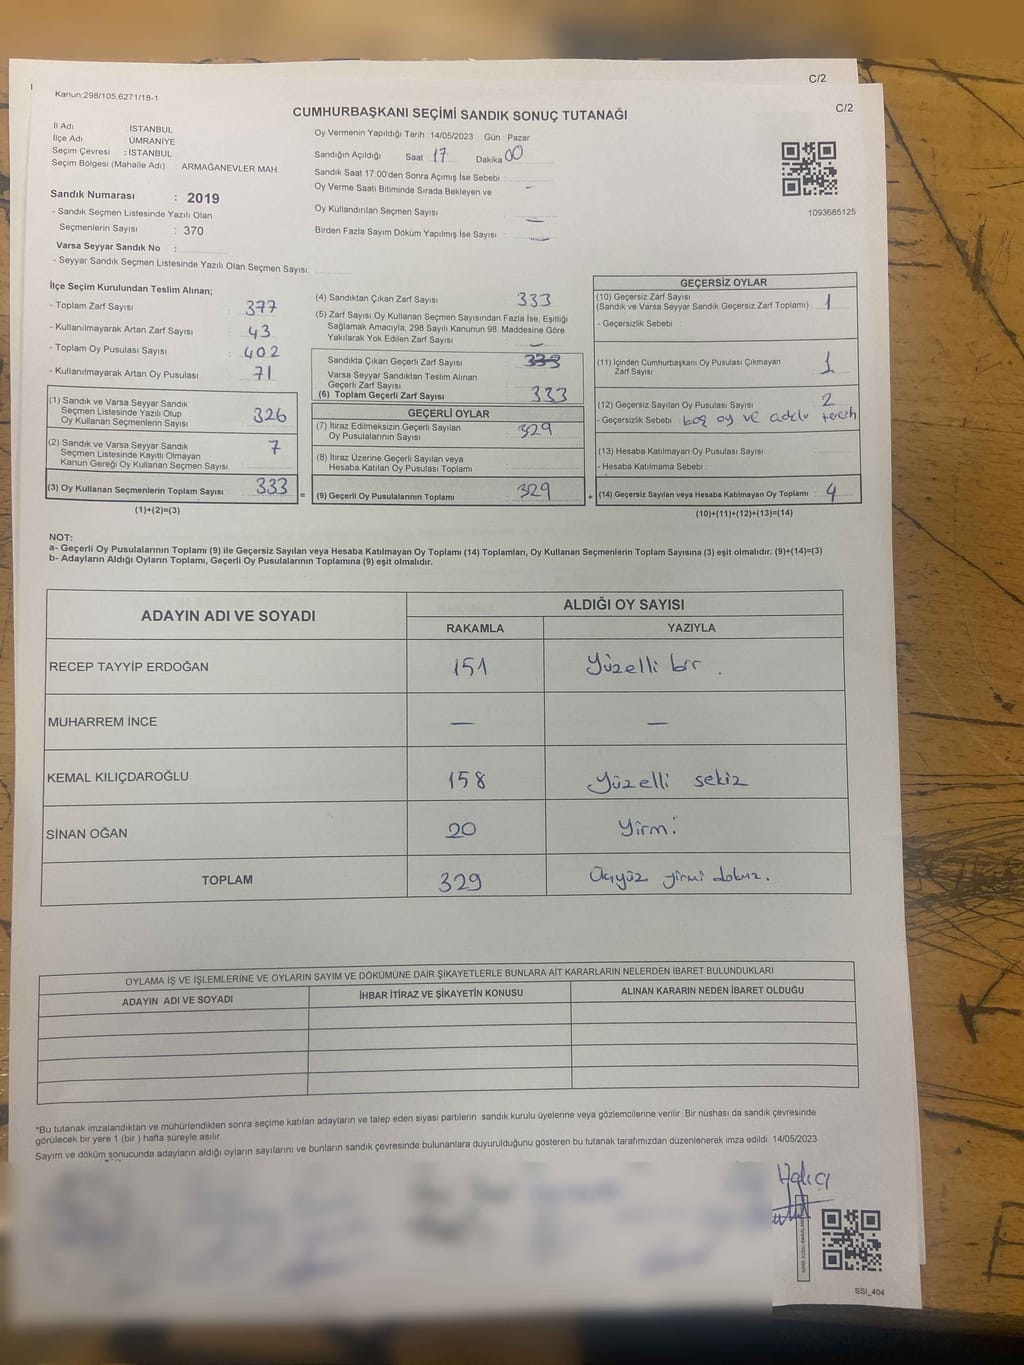 C/2
C/2
Kanun:298/105;6271/18-1
CUMHURBAŞKANI SEÇİMİ SANDIK SONUÇ TUTANAĞI
İl Adı : İSTANBUL
İlçe Adı : ÜMRANİYE
Seçim Çevresi : İSTANBUL
Seçim Bölgesi (Mahalle Adı) : ARMAĞANEVLER MAH
Sandık Numarası : 2019
- Sandık Seçmen Listesinde Yazılı Olan
Seçmenlerin Sayısı : 370
Varsa Seyyar Sandık No :
- Seyyar Sandık Seçmen Listesinde Yazılı Olan Seçmen Sayısı:
Oy Vermenin Yapıldığı Tarih : 14/05/2023 Gün : Pazar
Sandığın Açıldığı Saat 17 Dakika 00
Sandık Saat 17:00'den Sonra Açımış İse Sebebi :
Oy Verme Saati Bitiminde Sırada Bekleyen ve –
Oy Kullandırılan Seçmen Sayısı –
Birden Fazla Sayım Döküm Yapılmış İse Sayısı : –
1093685125
İlçe Seçim Kurulundan Teslim Alınan;
- Toplam Zarf Sayısı : 377
- Kullanılmayarak Artan Zarf Sayısı : 43
- Toplam Oy Pusulası Sayısı : 402
- Kullanılmayarak Artan Oy Pusulası : 71
(1) Sandık ve Varsa Seyyar Sandık
Seçmen Listesinde Yazılı Olup
Oy Kullanan Seçmenlerin Sayısı : 326
(2) Sandık ve Varsa Seyyar Sandık
Seçmen Listesinde Kayıtlı Olmayan
Kanun Gereği Oy Kullanan Seçmen Sayısı : 7
(3) Oy Kullanan Seçmenlerin Toplam Sayısı : 333 =
(1)+(2)=(3)
(4) Sandıktan Çıkan Zarf Sayısı : 333
(5) Zarf Sayısı Oy Kullanan Seçmen Sayısından Fazla İse, Eşitliği
Sağlamak Amacıyla; 298 Sayılı Kanunun 98. Maddesine Göre
Yakılarak Yok Edilen Zarf Sayısı : –
Sandıkta Çıkan Geçerli Zarf Sayısı : 333
Varsa Seyyar Sandıktan Teslim Alınan
Geçerli Zarf Sayısı
(6) Toplam Geçerli Zarf Sayısı : 333
GEÇERLİ OYLAR
(7) İtiraz Edilmeksizin Geçerli Sayılan
Oy Pusulalarının Sayısı : 329
(8) İtiraz Üzerine Geçerli Sayılan veya
Hesaba Katılan Oy Pusulası Toplamı :
(9) Geçerli Oy Pusulalarının Toplamı : 329 +
GEÇERSİZ OYLAR
(10) Geçersiz Zarf Sayısı
(Sandık ve Varsa Seyyar Sandık Geçersiz Zarf Toplamı) : 1
- Geçersizlik Sebebi :
(11) İçinden Cumhurbaşkanı Oy Pusulası Çıkmayan
Zarf Sayısı : 1
(12) Geçersiz Sayılan Oy Pusulası Sayısı : 2
- Geçersizlik Sebebi : boş oy ve tercih
(13) Hesaba Katılmayan Oy Pusulası Sayısı :
- Hesaba Katılmama Sebebi :
(14) Geçersiz Sayılan veya Hesaba Katılmayan Oy Toplamı : 4
(10)+(11)+(12)+(13)=(14)
NOT:
a- Geçerli Oy Pusulalarının Toplamı (9) ile Geçersiz Sayılan veya Hesaba Katılmayan Oy Toplamı (14) Toplamları, Oy Kullanan Seçmenlerin Toplam Sayısına (3) eşit olmalıdır. (9)+(14)=(3)
b- Adayların Aldığı Oyların Toplamı, Geçerli Oy Pusulalarının Toplamına (9) eşit olmalıdır.
ADAYIN ADI VE SOYADI ALDIĞI OY SAYISI
RAKAMLA YAZIYLA
RECEP TAYYİP ERDOĞAN 151 Yüzelli bir.
MUHARREM İNCE — —
KEMAL KILIÇDAROĞLU 158 Yüzelli sekiz
SİNAN OĞAN 20 Yirmi
TOPLAM 329 Üçyüz yirmi dokuz.
OYLAMA İŞ VE İŞLEMLERİNE VE OYLARIN SAYIM VE DÖKÜMÜNE DAİR ŞİKAYETLERLE BUNLARA AİT KARARLARIN NELERDEN İBARET BULUNDUKLARI
ADAYIN ADI VE SOYADI İHBAR İTİRAZ VE ŞİKAYETİN KONUSU ALINAN KARARIN NEDEN İBARET OLDUĞU
*Bu tutanak imzalandıktan ve mühürlendikten sonra seçime katılan adayların ve talep eden siyasi partilerin sandık kurulu üyelerine veya gözlemcilerine verilir. Bir nüshası da sandık çevresinde
görülecek bir yere 1 (bir) hafta süreyle asılır.
Sayım ve döküm sonucunda adayların aldığı oyların sayılarını ve bunların sandık çevresinde bulunanlara duyurulduğunu gösteren bu tutanak tarafımızdan düzenlenerek imza edildi. 14/05/2023
SSI_404